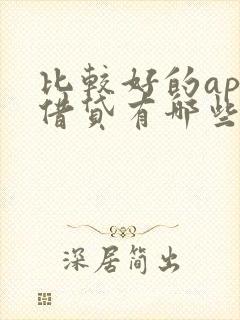 比较好的ap
借贷有哪些
深居简出